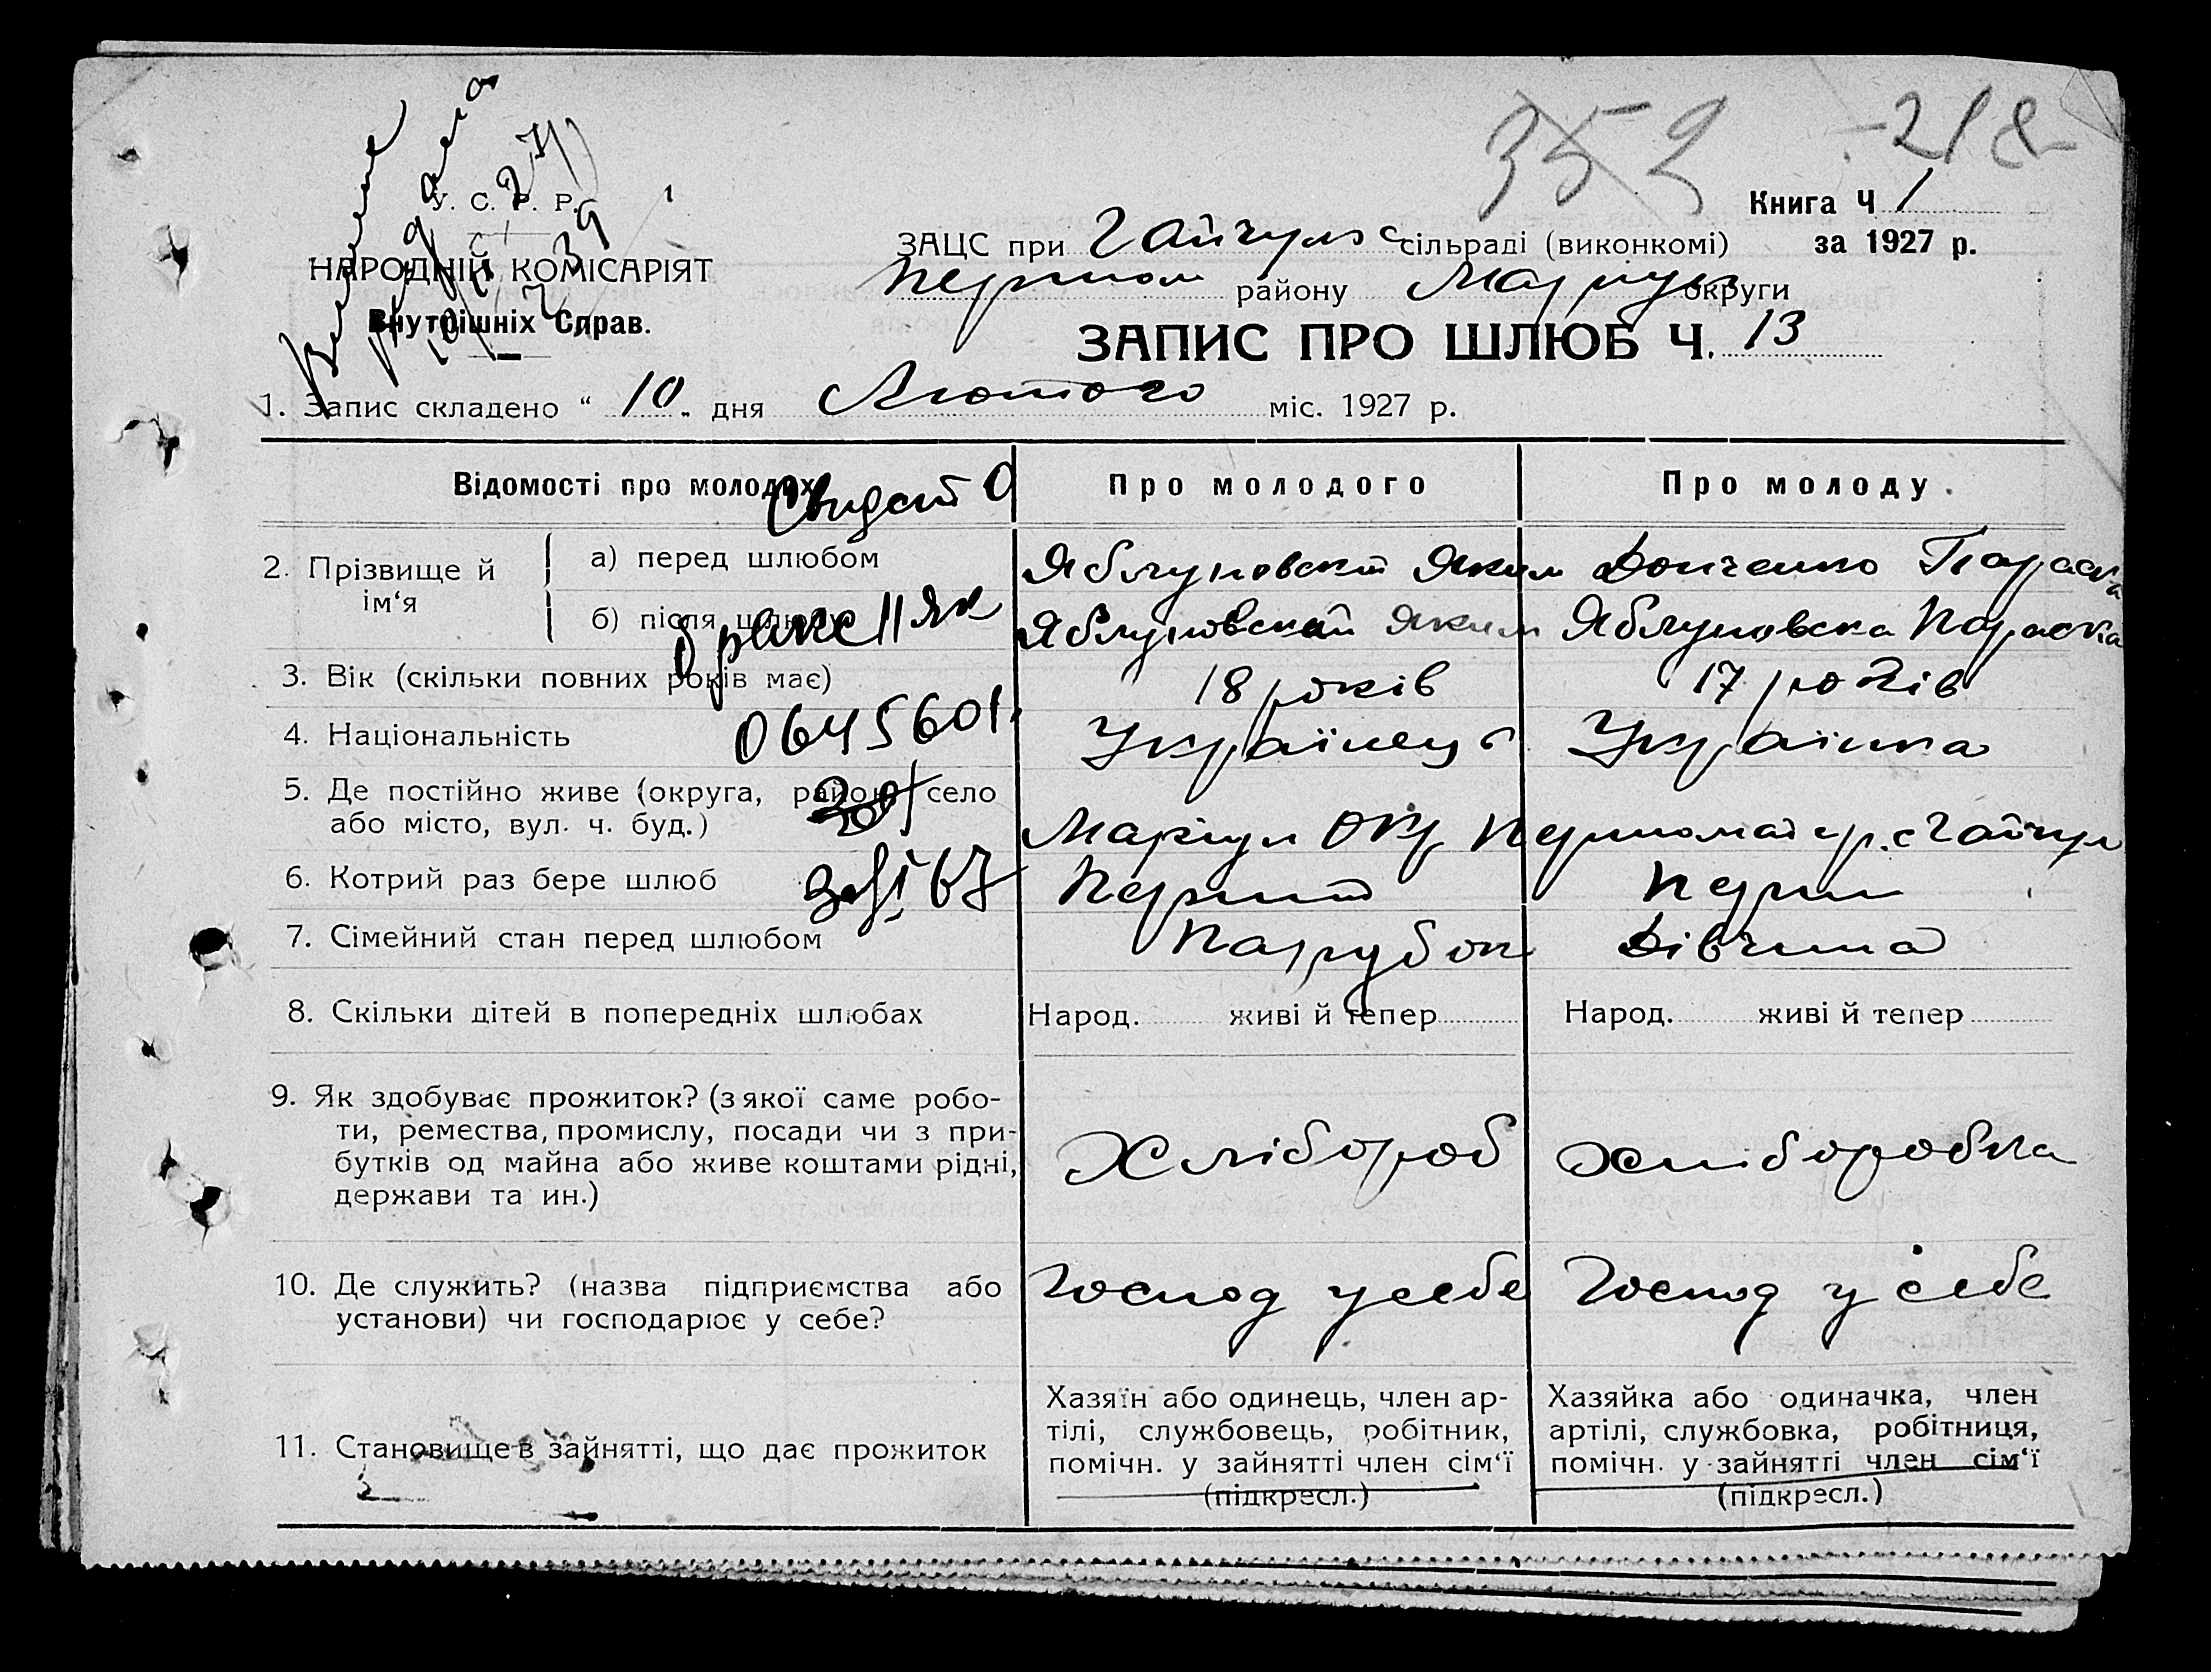 352 -218
У. С. Р. Р.
НАРОДНІЙ КОМІСАРІЯТ
Внутрішніх Справ.
Книга Ч. 1
за 1927 р.
ЗАЦС при Гайчульс сільраді (виконкомі)
Першом району Маріуп округи
ЗАПИС ПРО ШЛЮБ Ч. 13
1. Запис складено "10" дня Лютого міс. 1927 р.
Відомості про молодих
Про молодого
Про молоду.
Свидет О
2. Прізвище й ім'я
а) перед шлюбом
Яблуновский Яким
Донченко Параска
б) після шлюбу
Яблуновский Яким
Яблуновска Параска
браке II ЯК
3. Вік (скільки повних років має)
18 років
17 років
4. Національність
0645601
Українець
Українка
5. Де постійно живе (округа, район, село
або місто, вул. ч. буд.)
Маріуп Окр Першомай р. с Гайчул
6. Котрий раз бере шлюб
67
Перший
Перш
7. Сімейний стан перед шлюбом
Парубок
Дівчина
8. Скільки дітей в попередніх шлюбах
Народ. живі й тепер
Народ. живі й тепер
9. Як здобуває прожиток? (з якої саме робо-
ти, ремества, промислу, посади чи з при-
бутків од майна або живе коштами рідні,
держави та ин.)
Хлібороб
Хлиборобка
10. Де служить? (назва підприємства або
установи) чи господарює у себе?
Господ у себе
Господ у себе
11. Становище в зайнятті, що дає прожиток
Хазяїн або одинець, член ар-
тілі, службовець, робітник,
помічн. у зайнятті член сім'ї
(підкресл.)
Хазяйка або одиначка, член
артілі, службовка, робітниця,
помічн. у зайнятті член сім'ї
(підкресл.)